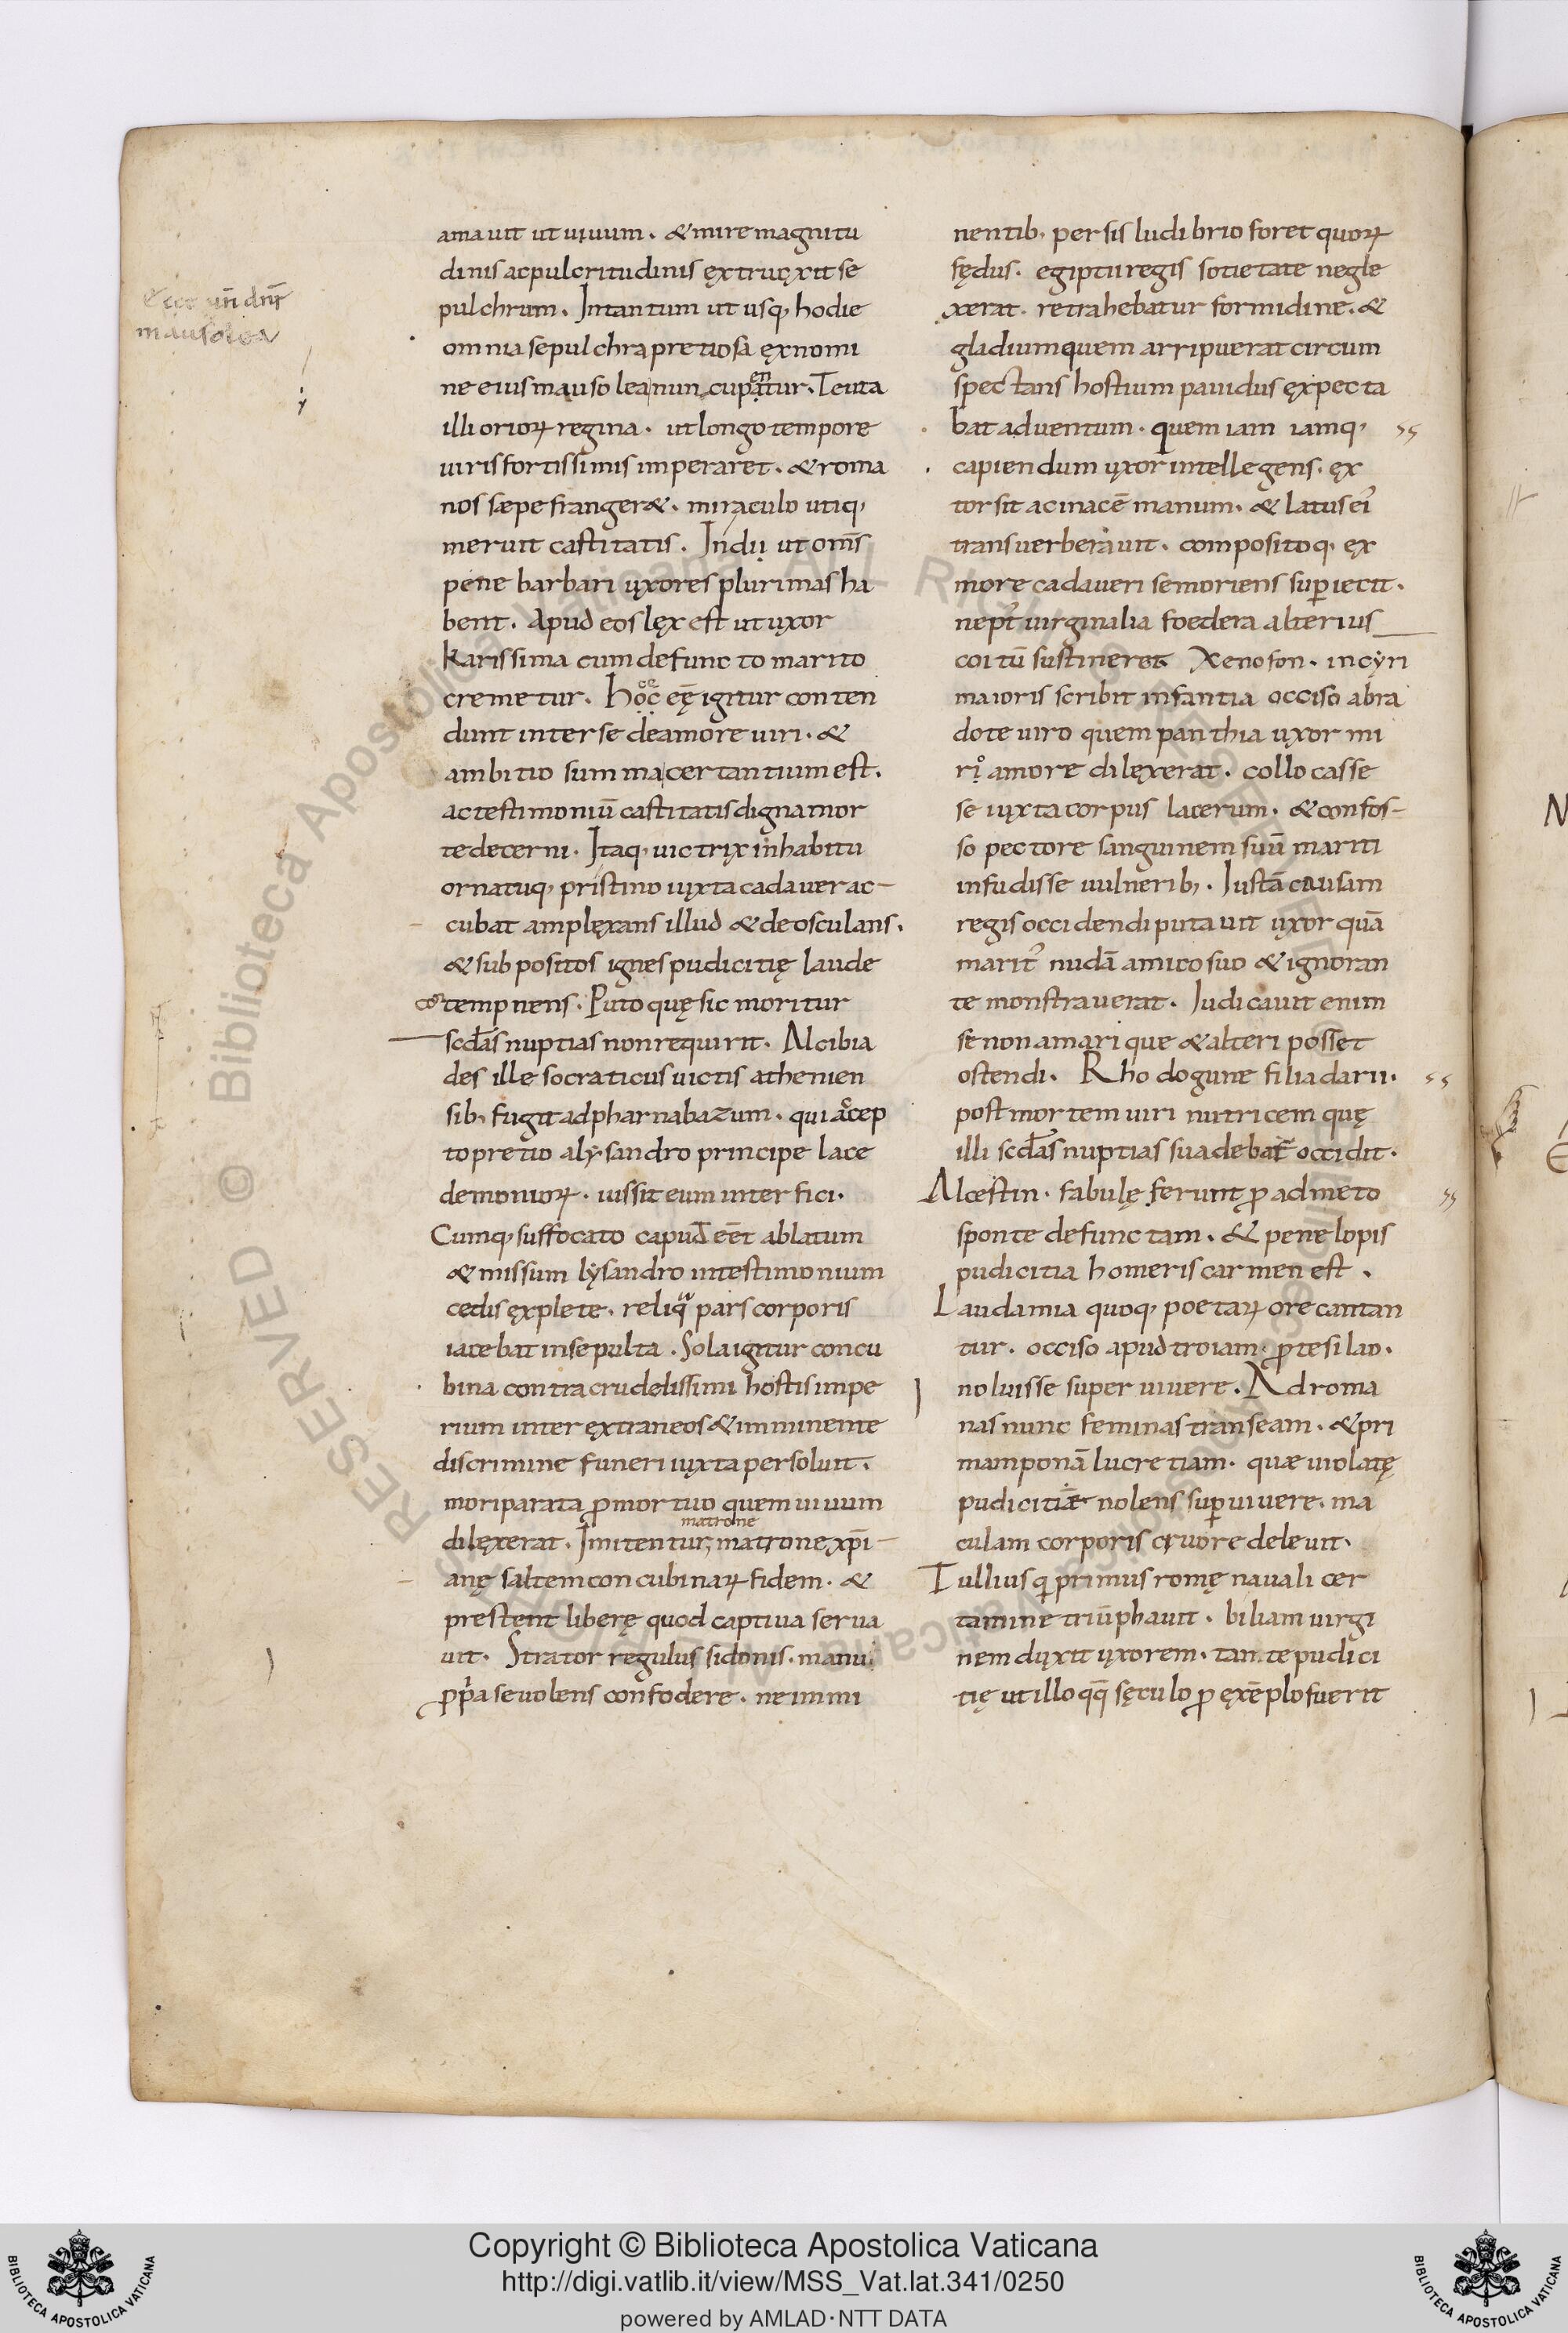 Ecce un̄ dnr̄
mausolea
ama uit ut uiuum. & mire magnitu
dinis ac pulcritudinis ęxtruęxit se
pulchrum. Intantum ut usq; hodie
omnia sepulchra pretiosa ęx nomi
ne eius mausolea nuncupantur. Teuta
illiorioꝝ regina. ut longo tempore
uiris fortissimis imperaret. & roma
nos sæpe franger&. miraculo utiq;
meruit castitatis. Indii ut om̄s
pene barbari uxores plurimas ha
bent. Apud eos lęx est ut uxor
karissima cum defuncto marito
cremetur. hoc eę igitur conten
dunt inter se de amore uiri. &
ambitio summa certantium est.
ac testimoniū castitatis digna mor
te decerni. Itaq; uictrix in habitu
ornatuq; pristino iuxta cadauer ac
cubat amplęxans illud & deosculans.
& sub positos ignes pudicitię laude
cōtempnens. Puto quę sic moritur
scd̄as nuptias non requirit. Alcibia
des ille socraticus uictis athenien
sib; fugit ad pharnabazum. qui accep
to pretio alysandro principe lace
demonioꝝ. iussit eum interfici.
Cumq; suffocato capud eēt ablatum
& missum lysandro in testimonium
cedis ęxplete. reliqua pars corporis
iacebat insepulta. Sola igitur concu
bina contra crudelissimi hostis impe
rium inter ęxtraneos & imminente
discrimine funeri iuxta persoluit.
mori parata ꝓ mortuo quem uiuum
matrone
dilęxerat. Imitentur matrone xp̄i
anę saltem concubinaꝝ fidem. &
prestent liberę quod captiua serua
uit. Strator regulus sidonis. manu
ꝓp̄a se uolens confodere. ne immi
nentib; persis ludibrio foret quoꝝ
fędus. egiptii regis sotietate negle
xerat. retrahebatur formidine. &
gladium quem arripuerat circum
spectans hostium pauidus ęxpecta
bat aduentum. quem iam iamq;
capiendum uxor intellegens. ęx
torsit acinacē manum. & latus eī
transuerberauit. compositoq; ęx
more cadaueri se moriens sup̄iecit.
nep̄t uirginalia foedera alterius
coitū sustineret. Xenofon. in cyri
maioris scribit infantia occiso abra
dote uiro quem panthia uxor mi
ro amore dilęxerat. collocasse
se iuxta corpus lacerum. & confos
so pectore sanguinem suū mariti
infudisse uulnerib;. Iustā causam
regis occidendi putauit uxor quā
marit̄ nudā amico suo & ignoran
te monstrauerat. Iudicauit enim
se non amari que & alteri posset
ostendi. Rhodogune filia darii.
post mortem uiri nutricem quę
illi scd̄as nuptias suadebat occidit.
Alcestin. fabulę ferunt ꝓ admeto
sponte defunctam. & penelopis
pudicitia homeris carmen est.
Laudamia quoq; poetaꝝ ore cantan
tur. occiso apud troiam ꝓtesilao.
noluisse super uiuere. Ad roma
nas nunc feminas transeam. & pri
mam ponā lucretiam. quæ uiolatę
pudicitiæ nolens sup̄uiuere. ma
culam corporis cruore deleuit.
Tullius q̄ primus romę nauali cer
tamine triūphauit. biliam uirgi
nem duxit uxorem. tante pudici
tię ut illo qq̄ sęculo ꝓ ęxēplo fuerit
Copyright © Biblioteca Apostolica Vaticana
http://digi.vatlib.it/view/MSS_Vat.lat.341/0250
powered by AMLAD·NTT DATA
BIBLIOTECA APOSTOLICA VATICANA
BIBLIOTECA APOSTOLICA VATICANA